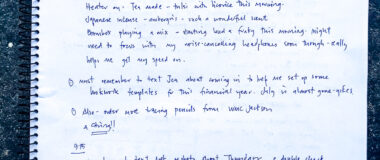 Heater on. Tea made - talks with licorice this morning.
Japanese incense - ambergris - such a wonderful scent
Boombox playing a mix - blasting loud & fusty this morning. Might
need to focus with my noise-cancelling headphones soon though - really
helps me get my speed on.
must remember to text Jen about coming in to help me set up some
templates for this financial year. July is almost gone - yikes
Also - order more tracing pencils from
a string!!
9:15